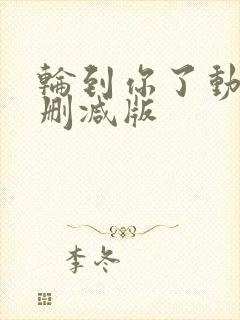 輪到你了動
刪減版
李冬